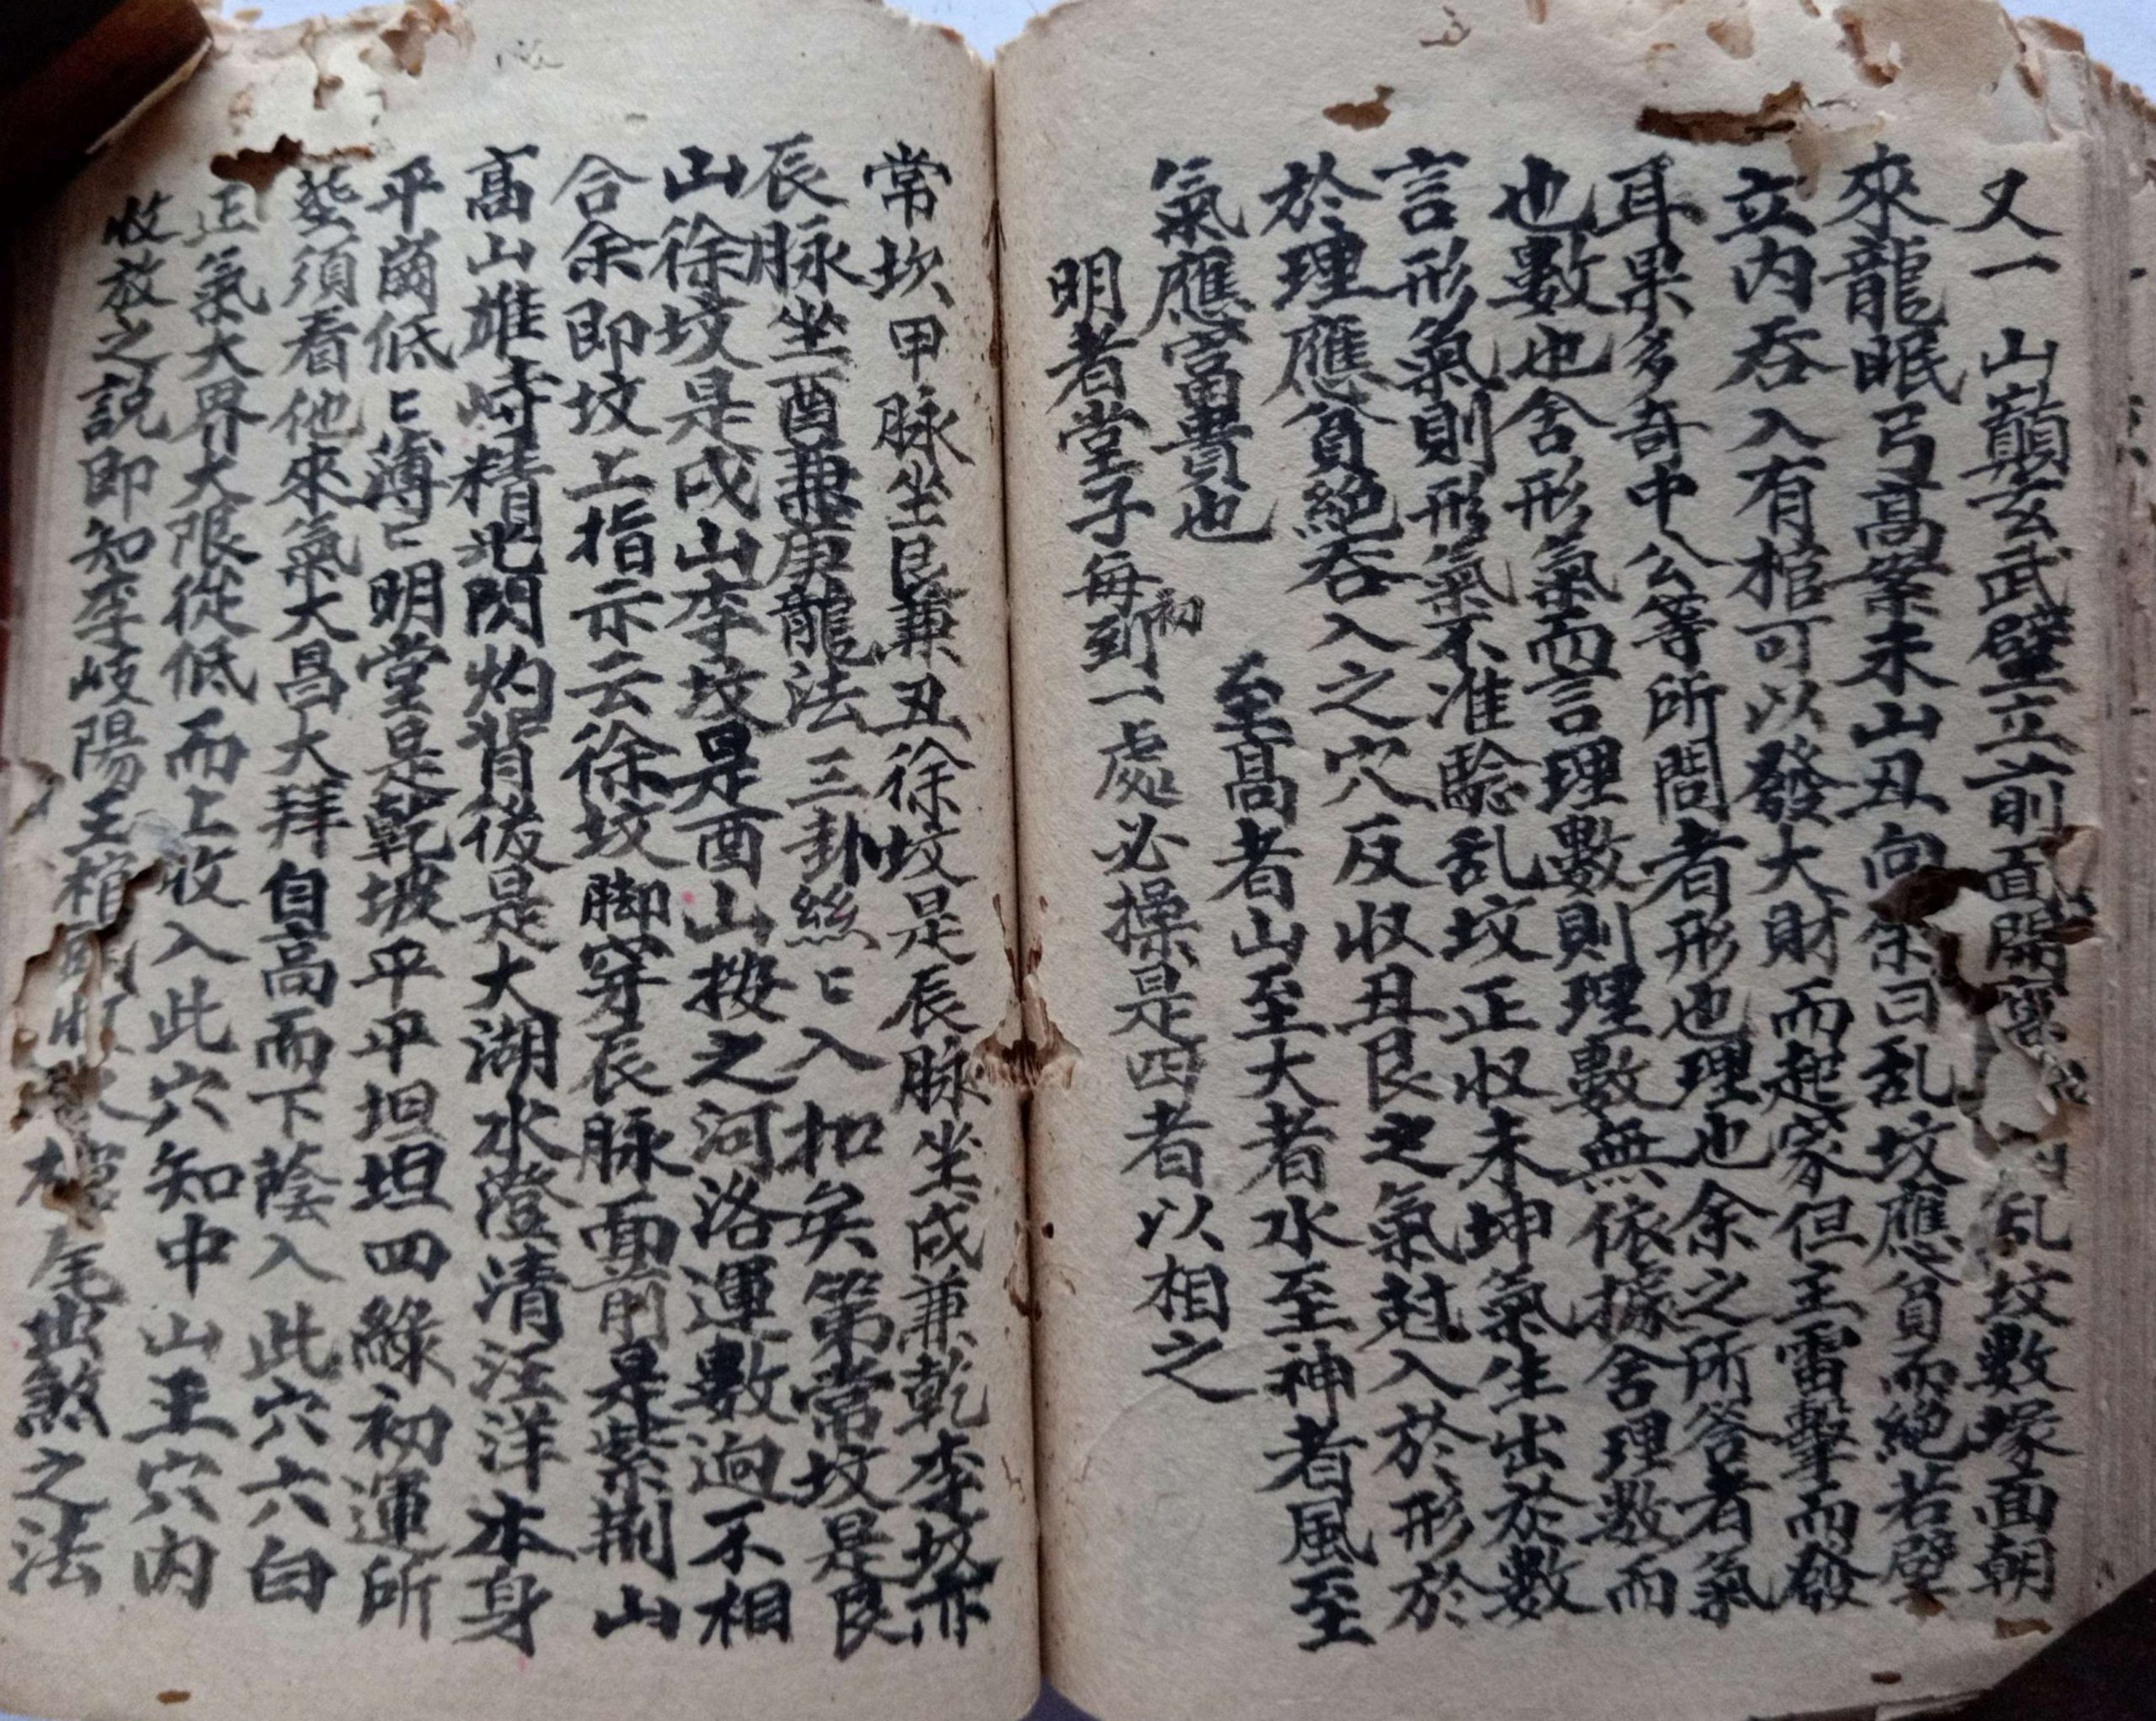 又一山巔玄武壁立前面開窩乱坟數塚面朝
來龍眠弓高案未山丑向余曰乱坟應貧而絕若壁
立內吞入有棺可以發大財而起家但主雷擊而發
耳果多奇中公等所問者形也理也余之所答者氣
也數也舍形氣而言理數則理數無依據舍理數而
言形氣則形氣不准驗乱坟正収未坤氣生出於數
於理應貧絕吞入之穴反収丑艮之氣尅入於形於
氣應富貴也
至高者山至大者水至神者風至
明者堂子每到初一處必操是四者以相之
常坎甲脉坐艮兼丑徐坟是辰脉坐戌兼乾李坟亦
辰脉坐酉兼庚龍法三卦絲匕入扣矣第常坟是艮
山徐坟是戌山李坟是酉山按之河洛運數逈不相
合余即坟上指示云徐坟脚穿辰脉面前是紫荆山
高山雄峙精光閃灼背後是大湖水澄清汪洋本身
平岡低匕薄匕明堂是乾坡平平坦坦四綠初運所
塟須看他來氣大昌大拜自高而下蔭入此穴六白
正氣大界大限從低而上收入此穴知中山王穴內
收放之説即知李岐陽王棺尾出煞之法